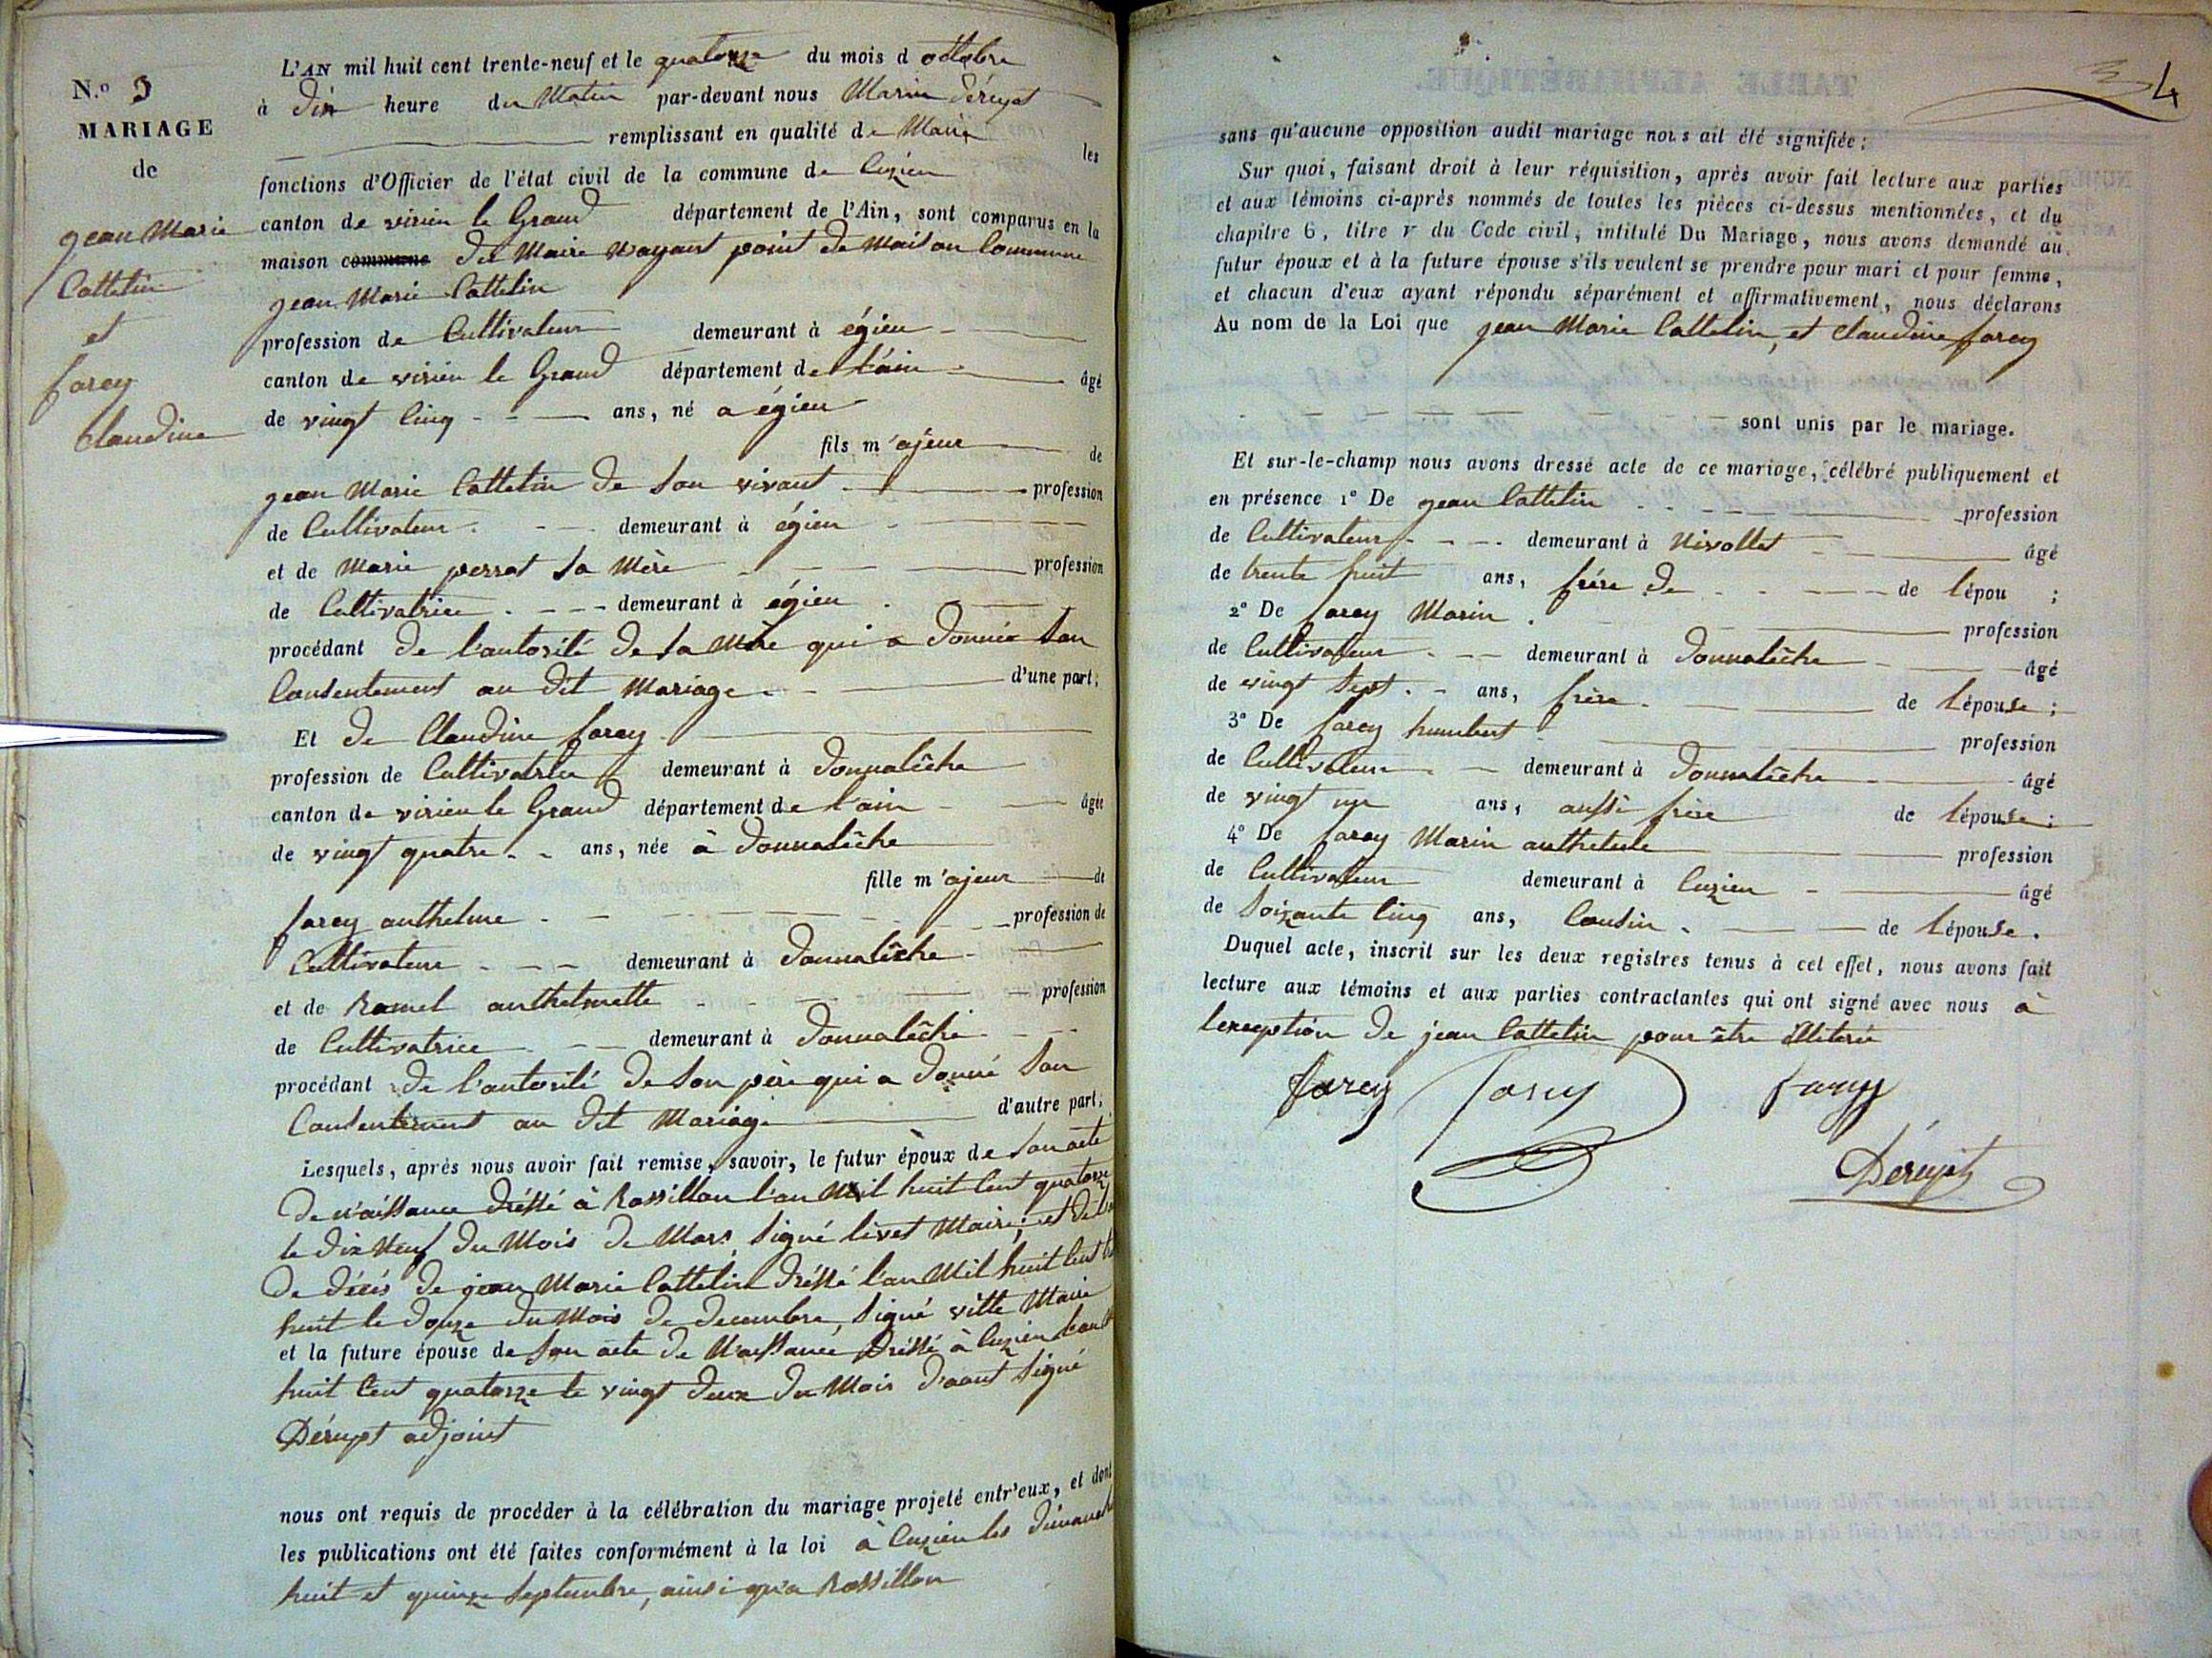 N.o 3
MARIAGE
de
jean Marie
Cattelin
et
farcy
Claudine
L'AN mil huit cent trente-neuf et le quatorze du mois d octobre
à dix heure du Matin par-devant nous Marin Déruyet
remplissant en qualité de Maire les
fonctions d'Officier de l'état civil de la commune de Cuzieu
canton de virieu le Grand département de l'Ain, sont comparus en la
maison commune du Maire n'ayant point de Maison Commune
jean Marie Cattelin
profession de Cultivateur demeurant à égieu
canton de virieu le Grand département de l'ain âgé
de vingt cinq ans, né a égieu
fils m'ajeur de
jean Marie Cattelin de son vivant profession
de Cultivateur demeurant à égieu
et de Marie perrat sa Mère profession
de Cultivatrice demeurant à égieu
procédant de l'autorité de sa Mère qui a donnée son
Consentement au dit Mariage d'une part;
Et de Claudine farcy
profession de Cultivatrice demeurant à donnalèche
canton de virieu le Grand département de l'ain âgée
de vingt quatre ans, née à donnalèche
fille m'ajeur de
farcy anthelme profession de
Cultivateur demeurant à donnalèche
et de Ramel anthelmette profession
de Cultivatrice demeurant à donnalèche
procédant de l'autorité de son père qui a donné son
Consentement au dit Mariage d'autre part;
Lesquels, après nous avoir fait remise, savoir, le futur époux de son acte
de n'aissance dréssé à Rossillon l'an Mil huit Cent quatorze
le dix Neuf du Mois de Mars signé livet Maire; et de
de décès de jean Marie Cattelin dréssé l'an Mil huit Cent
huit le douze du Mois de decembre, signé vitte Maire
et la future épouse de son acte de Naissance dréssé à Cuzieu l'an
huit Cent quatorze le vingt deux du Mois d'aout signé
Déruyet adjoint
nous ont requis de procéder à la célébration du mariage projeté entr'eux, et dont
les publications ont été faites conformément à la loi à Cuzieu les dimanche
huit et quinze septembre, ainsi qu'a Rossillon
4
sans qu'aucune opposition audit mariage nous ait été signifiée;
Sur quoi, faisant droit à leur réquisition, après avoir fait lecture aux parties
et aux témoins ci-après nommés de toutes les pièces ci-dessus mentionnées, et du
chapitre 6, titre v du Code civil, intitulé Du Mariage, nous avons demandé au
futur époux et à la future épouse s'ils veulent se prendre pour mari et pour femme,
et chacun d'eux ayant répondu séparément et affirmativement, nous déclarons
Au nom de la Loi que jean Marie Cattelin, et Claudine farcy
sont unis par le mariage.
Et sur-le-champ nous avons dressé acte de ce mariage, célébré publiquement et
en présence 1° De jean Cattelin profession
de Cultivateur demeurant à Nivollet âgé
de trente huit ans, frère de de l'épou ;
2° De farcy Marin profession
de Cultivateur demeurant à donnalèche âgé
de vingt sept ans, frère de l'épouse ;
3° De farcy humbert profession
de Cultivateur demeurant à donnalèche âgé
de vingt un ans, aussi frère de l'épouse ;
4° De farcy Marin anthelme profession
de Cultivateur demeurant à Cuzieu âgé
de soixante cinq ans, Cousin de l'épouse.
Duquel acte, inscrit sur les deux registres tenus à cet effet, nous avons fait
lecture aux témoins et aux parties contractantes qui ont signé avec nous à
l'exception de jean Cattelin pour être illiterée
farcy farcy farcy
Déruyet